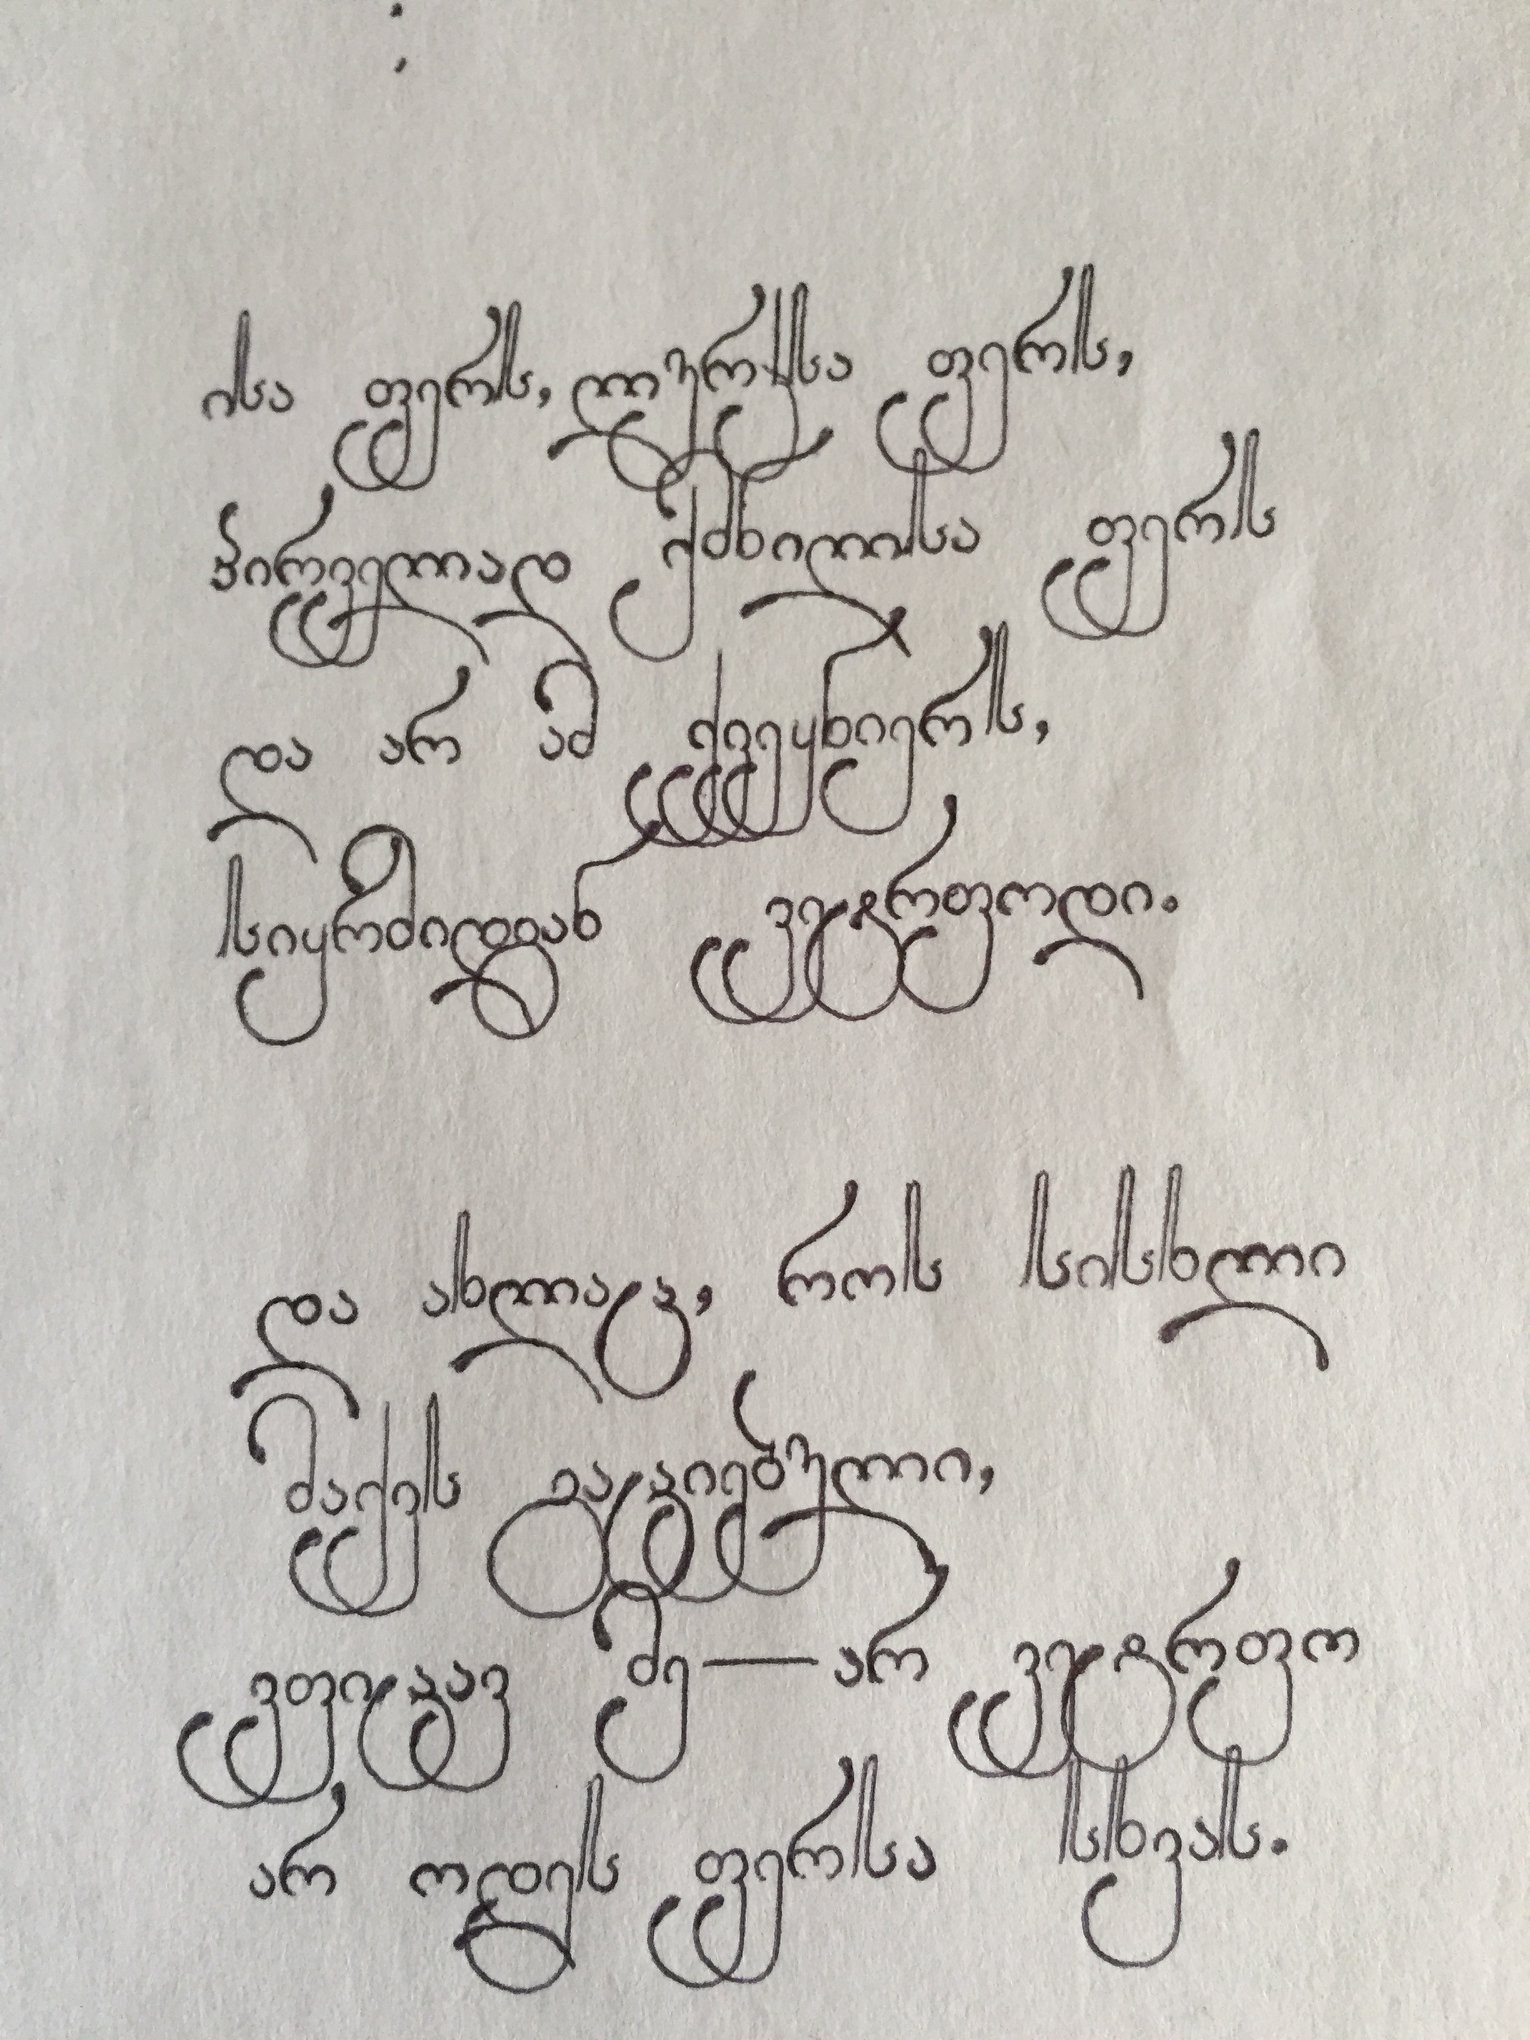 ისა ფერს, ლურჯსა ფერს,
პირველად ქმნილსა ფერს
და არ ამ ქვეყნიერს,
სიყრმიდგან ვეტრფოდი.
და ახლაც, როს სისხლი
მაქვს გაციებული,
ვფიცავ მე — არ ვეტრფო
არ ოდეს ფერსა სხვას.